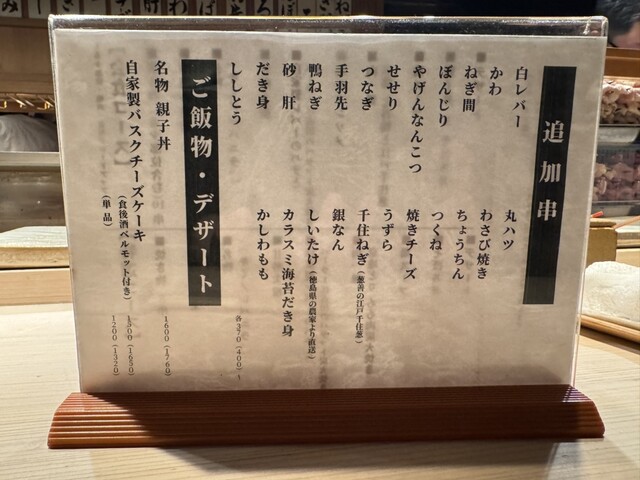 追加串
白レバー
丸ハツ
かわ
わさび焼き
ねぎ間
ちょうちん
ぼんじり
つくね
やげんなんこつ
焼きチーズ
せせり
うずら
つなぎ
千住ねぎ（葱善の江戸千住葱）
手羽先
銀なん
鴨ねぎ
しいたけ（徳島県の農家より直送）
砂肝
カラスミ海苔だき身
だき身
かしわもも
ししとう
各370（400）〜
ご飯物・デザート
名物 親子丼
1600（1760）
自家製バスクチーズケーキ
（食後酒ベルモット付き）
1500（1650）
（単品）
1200（1320）